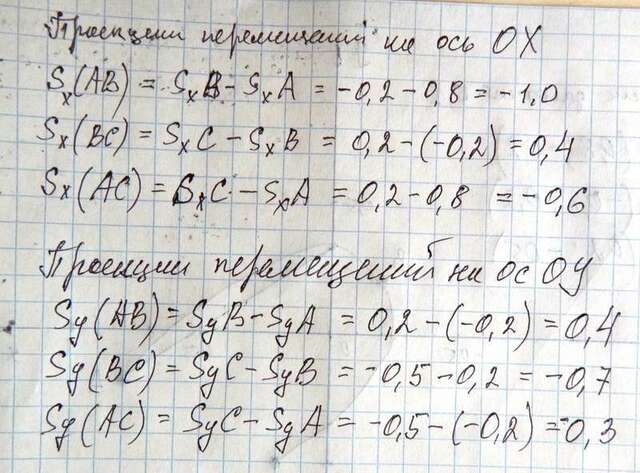 Проекции перемещений на ось OX
Sₓ(AB) = SₓB - SₓA = -0,2 - 0,8 = -1,0
Sₓ(BC) = SₓC - SₓB = 0,2 - (-0,2) = 0,4
Sₓ(AC) = SₓC - SₓA = 0,2 - 0,8 = -0,6
Проекции перемещений на ос ОУ
Sy(AB) = SyB - SyA = 0,2 - (-0,2) = 0,4
Sy(BC) = SyC - SyB = -0,5 - 0,2 = -0,7
Sy(AC) = SyC - SyA = -0,5 - (-0,2) = -0,3